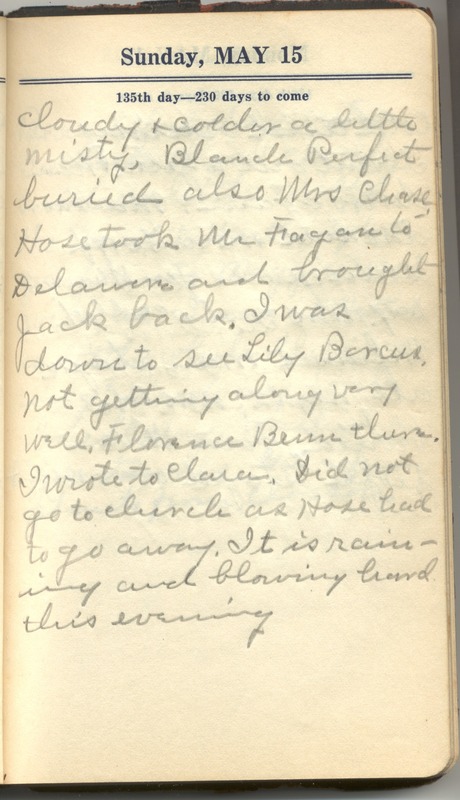 Sunday, MAY 15
135th day—230 days to come
cloudy & colder a little
misty, Blanch Perfect
buried also Mrs Chase,
Hose took Mr Fagan to
Delaware and brought
Jack back. I was
down to see Lily Barcus,
not getting along very
well. Florence Benn there.
I wrote to Clara. Did not
go to church as Hose had
to go away. It is rain-
ing and blowing hard
this evening